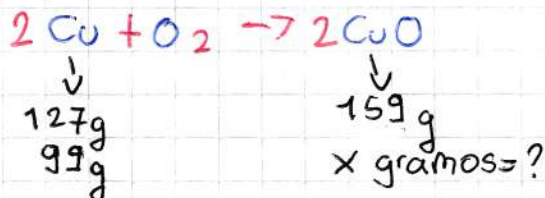 2 Cu + O2 -> 2 CuO
127g 159 g
99g x gramos=?